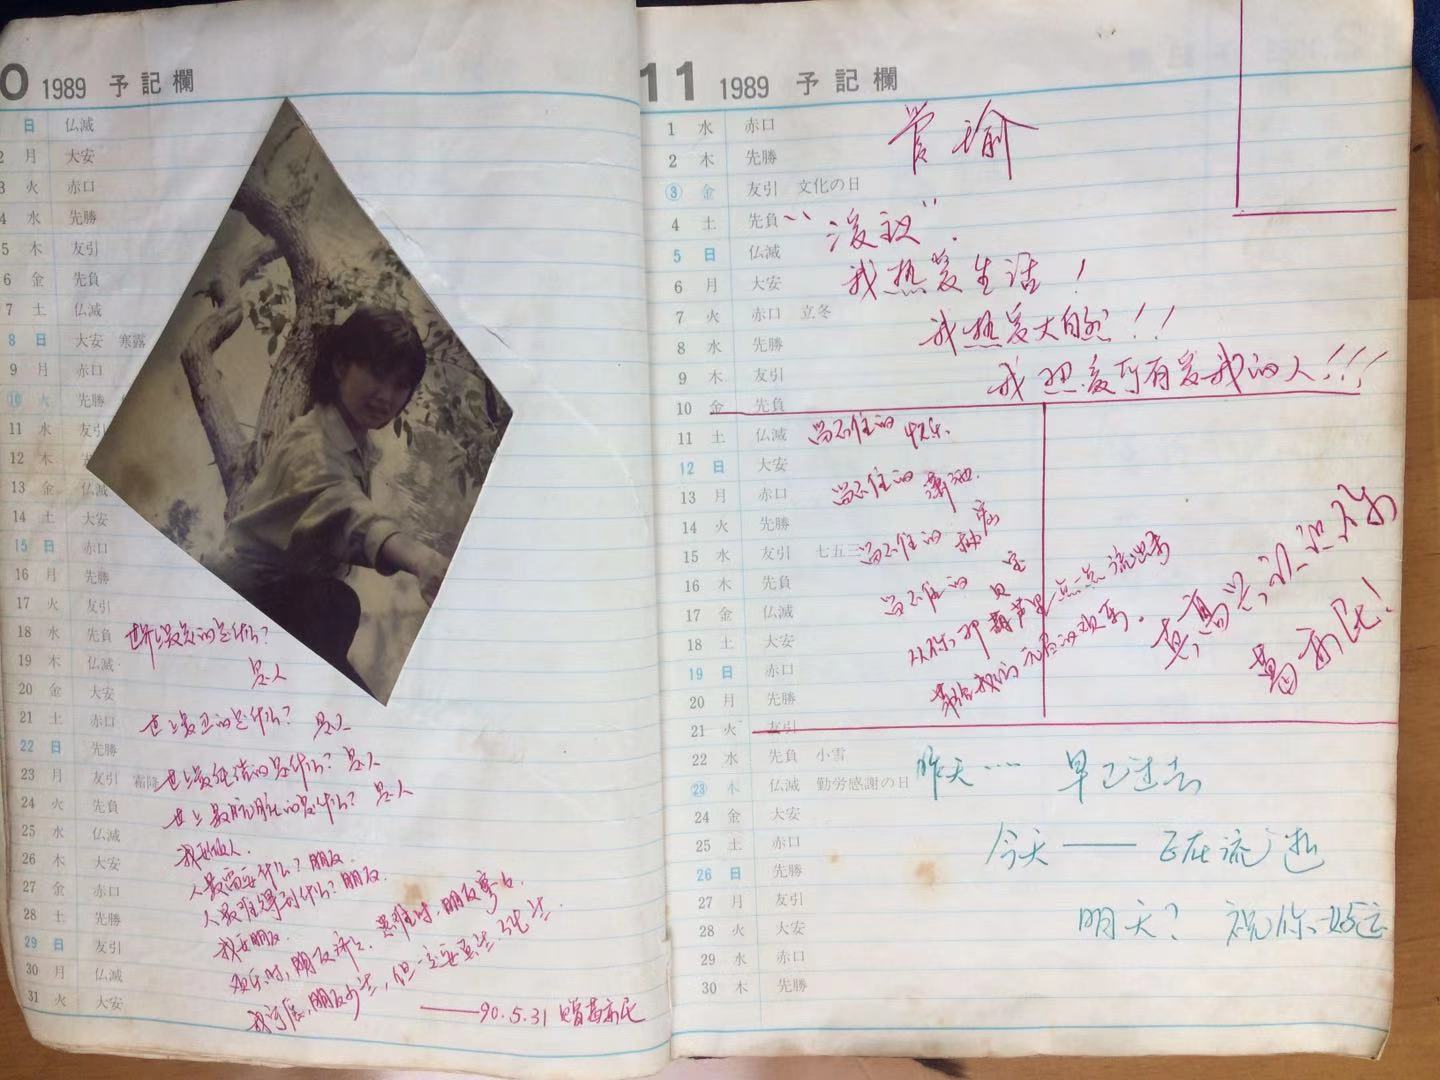 0 1989 予記欄
日 仏滅
2 月 大安
3 火 赤口
4 水 先勝
5 木 友引
6 金 先負
7 土 仏滅
8 日 大安 寒露
9 月 赤口
10 火 先勝
11 水 友引
12 木
13 金 仏滅
14 土 大安
15 日 赤口
16 月 先勝
17 火 友引
18 水 先負
19 木 仏滅
20 金 大安
21 土 赤口
22 日 先勝
23 月 友引 霜降
24 火 先負
25 水 仏滅
26 木 大安
27 金 赤口
28 土 先勝
29 日 友引
30 月 仏滅
31 火 大安
是人
世上最丑的是什么? 是人
世上最纯洁的是什么? 是人
世上最肮脏的是什么? 是人
我如做人.
人最需要什么? 朋友.
人最难得到什么? 朋友.
我如朋友.
欢乐时, 朋友
我
——90.5.31 赠葛新民
11 1989 予記欄
1 水 赤口
2 木 先勝
3 金 友引 文化の日
4 土 先負
5 日 仏滅
6 月 大安
7 火 赤口 立冬
8 水 先勝
9 木 友引
10 金 先負
11 土 仏滅
12 日 大安
13 月 赤口
14 火 先勝
15 水 友引 七五三
16 木 先負
17 金 仏滅
18 土 大安
19 日 赤口
20 月 先勝
21 火 友引
22 水 先負 小雪
23 木 仏滅 勤労感謝の日
24 金 大安
25 土 赤口
26 日 先勝
27 月 友引
28 火 大安
29 水 赤口
30 木 先勝
管瑜
我热爱生活!
我热爱大自然!!
我热爱所有爱我的人!!!
挡不住的快乐.
挡不住的潇洒.
挡不住的
挡不住的
从你那葫芦里一点一点流出来
真高兴认识你
葛新民!
昨天…… 早已过去
今天—— 正在流逝
明天? 祝你好运